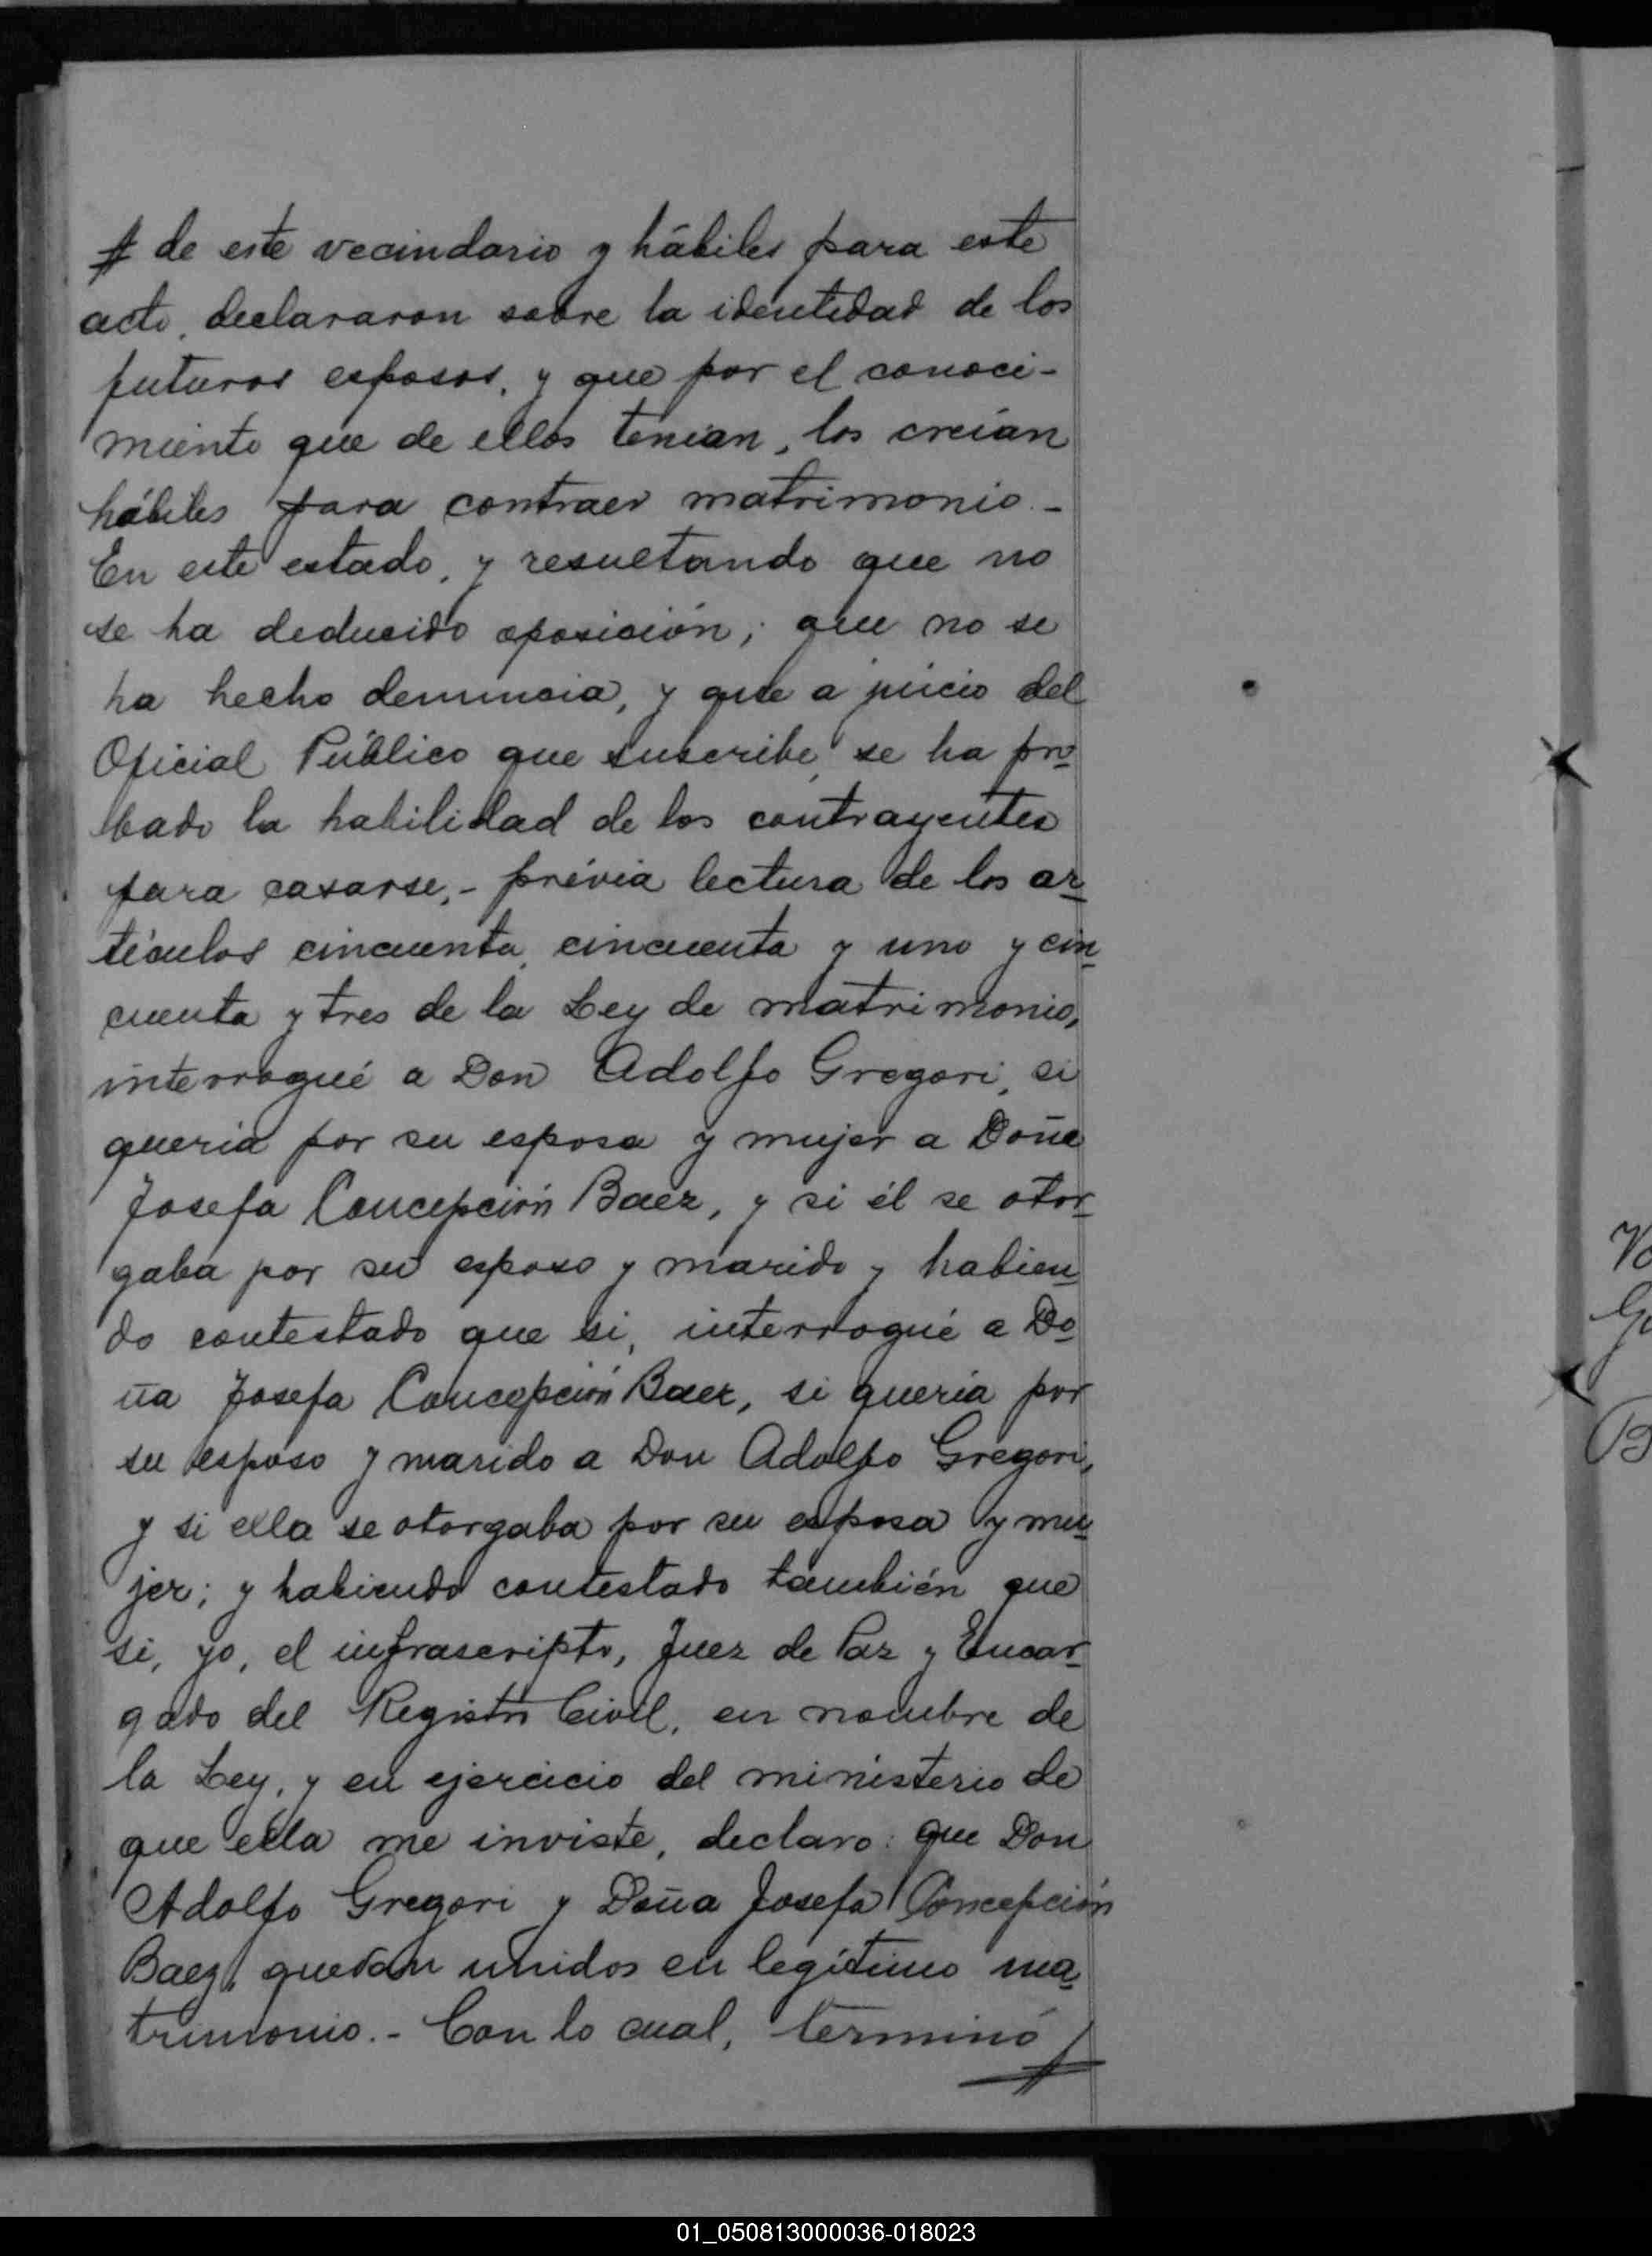 # de este vecindario y hábiles para este
acto, declararon sobre la identidad de los
futuros esposos, y que por el conoci-
miento que de ellos tenían, los creían
hábiles para contraer matrimonio.-
En este estado, y resultando que no
se ha deducido oposición; que no se
ha hecho denuncia, y que a juicio del
Oficial Público que suscribe, se ha pro
bado la habilidad de los contrayentes
para casarse,- prévia lectura de los ar
tículos cincuenta, cincuenta y uno y cin
cuenta y tres de la Ley de matrimonio,
interrogué a Don Adolfo Gregori, si
quería por su esposa y mujer a Doña
Josefa Concepción Baez, y si él se otor
gaba por su esposo y marido y habien
do contestado que si, interrogué a Do
ña Josefa Concepción Baez, si quería por
su esposo y marido a Don Adolfo Gregori,
y si ella se otorgaba por su esposa y mu
jer; y habiendo contestado también que
si, yo, el infrascripto, Juez de Paz y Encar
gado del Registro Civil, en nombre de
la Ley, y en ejercicio del ministerio de
que ella me inviste, declaro: que Don
Adolfo Gregori y Doña Josefa Concepción
Baez, quedan unidos en legítimo ma
trimonio.- Con lo cual, terminó
B
01_050813000036-018023